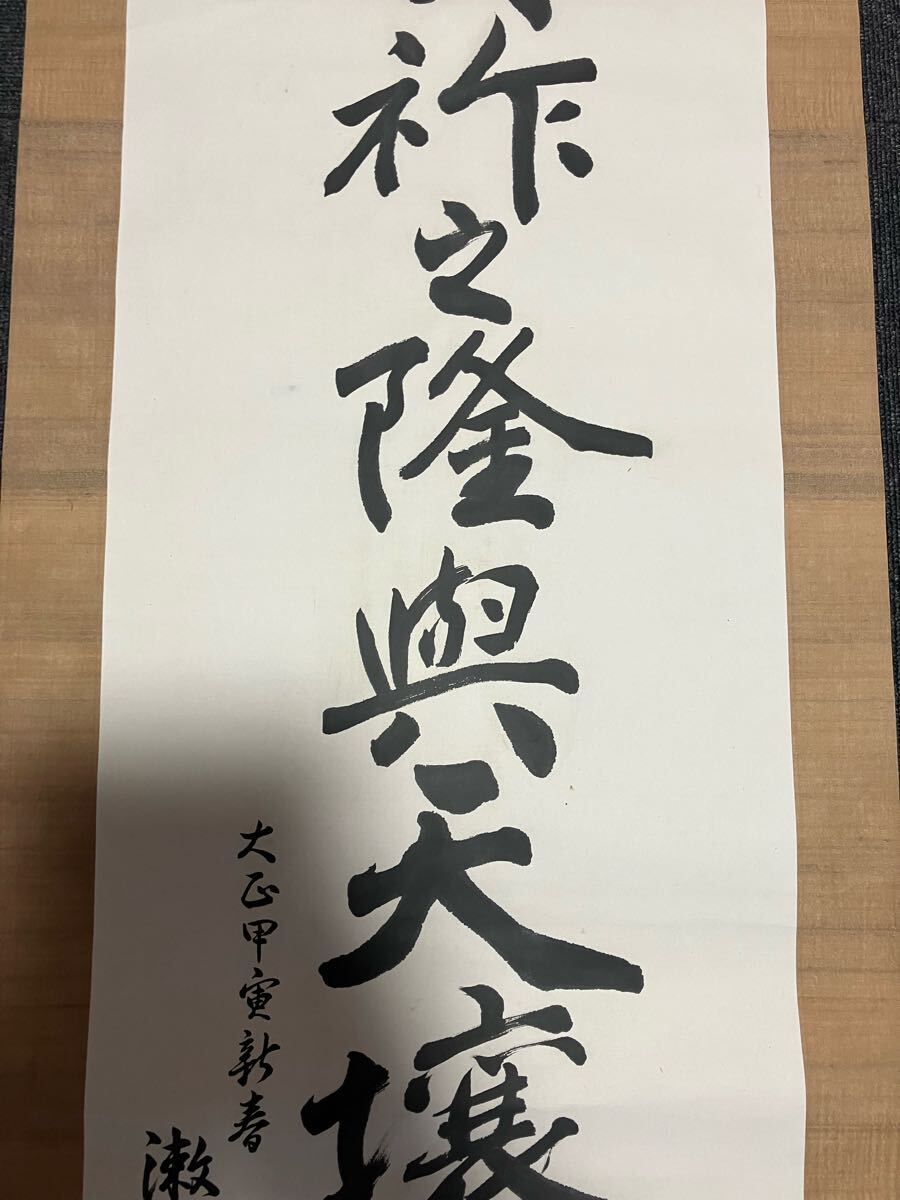 祚之隆與天壤
大正甲寅新春
漱